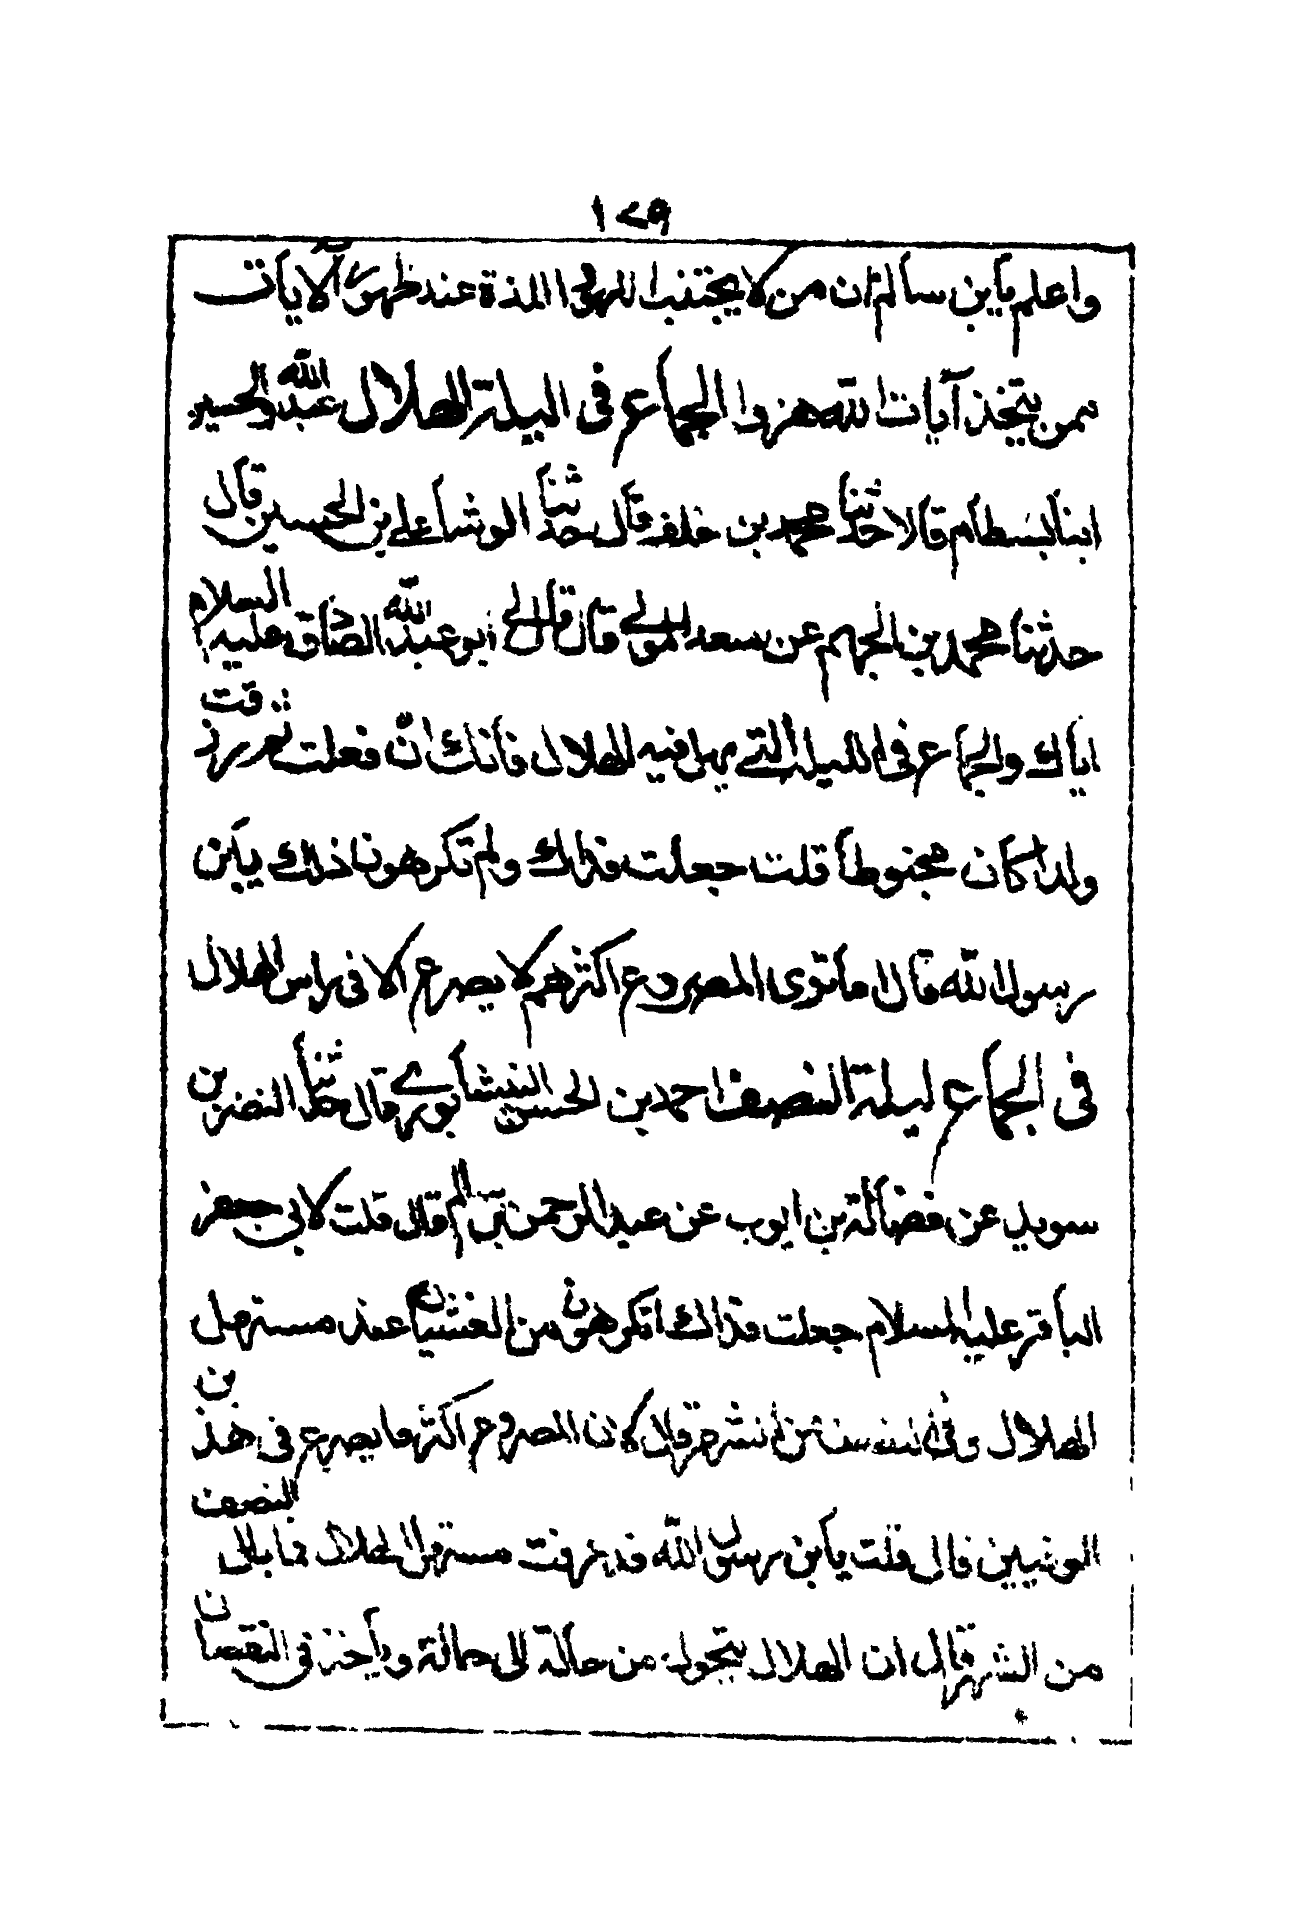 ١٢٩
واعلم يابن سالم ان من لا يجتنب اللهو واللذة عند ظهور الآيات
ممن يتخذ آيات الله هزوا الجماع في ليلة الهلال عبد الله والحسين
ابنا بسطام قالا حدثنا محمد بن خلف قال حدثنا الوشا علي بن الحسين قال
حدثنا محمد بن الجهم عن سعد المولى قال قال لي ابو عبد الله الصادق عليه السلام
اياك والجماع في الليلة التي يهل فيه الهلال فانك ان فعلت ثم رزقت
ولدا كان مخبوطا قلت جعلت فداك ولم تكرهون ذلك يابن
رسول الله قال اما ترى المصروع اكثرهم لا يصرع الا في راس الهلال
في الجماع ليلة النصف احمد بن الحسن النيشابوري قال حدثنا النضر بن
سويد عن فضالة بن ايوب عن عبد الرحمن بن سالم قال قلت لابي جعفر
الباقر عليه السلام جعلت فداك اتكرهون من الغشيان عند مستهل
الهلال وفي النصف من الشهر قال لان المصروع اكثر ما يصرع في هذين
الوقتين قال قلت يابن رسول الله قد عرفت مستهل الهلال فما بال النصف
من الشهر قال ان الهلال يتحول من حالة الى حالة وياخذ في النقصان